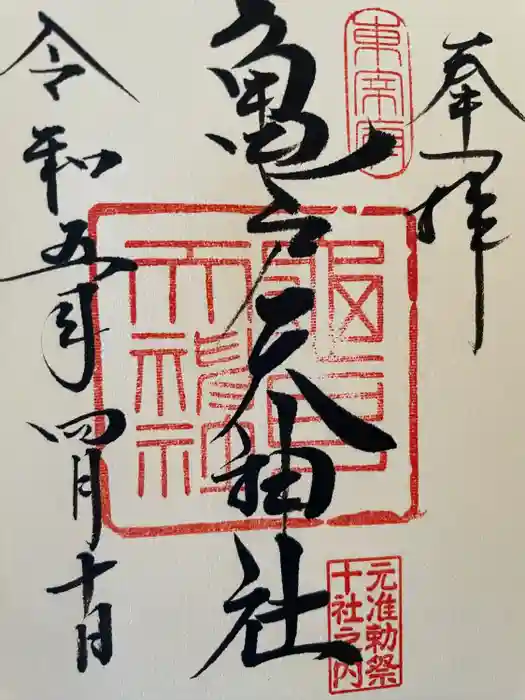 奉拝
東宰府
亀戸天神社
亀戸天神社
元准勅祭
十社之内
令和五年四月十日